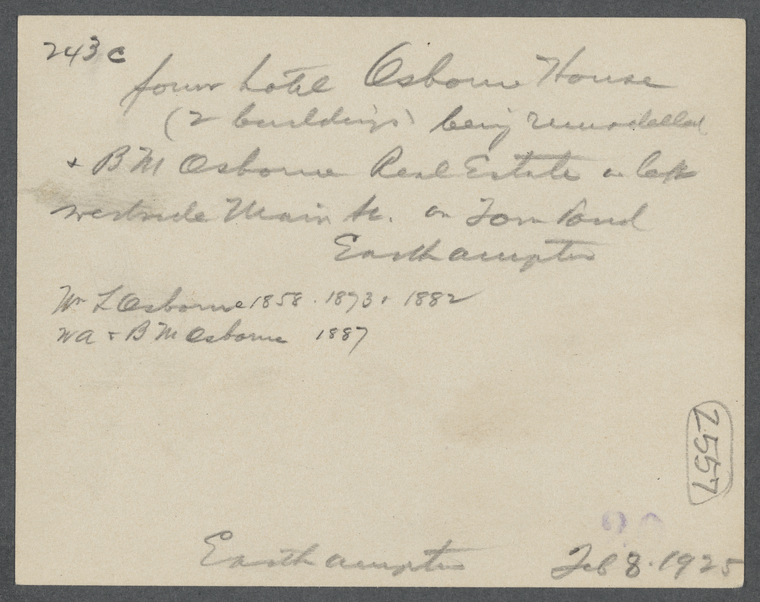 243c
former hotel Osborne House
(2 buildings) being remodelled
+ BM Osborne Real Estate on left
westside Main St. on Town Pond
Easthampton
Wm L Osborne 1858 · 1873 · 1882
WA + BM Osborne 1887
2557
Easthampton Feb 8 · 1925